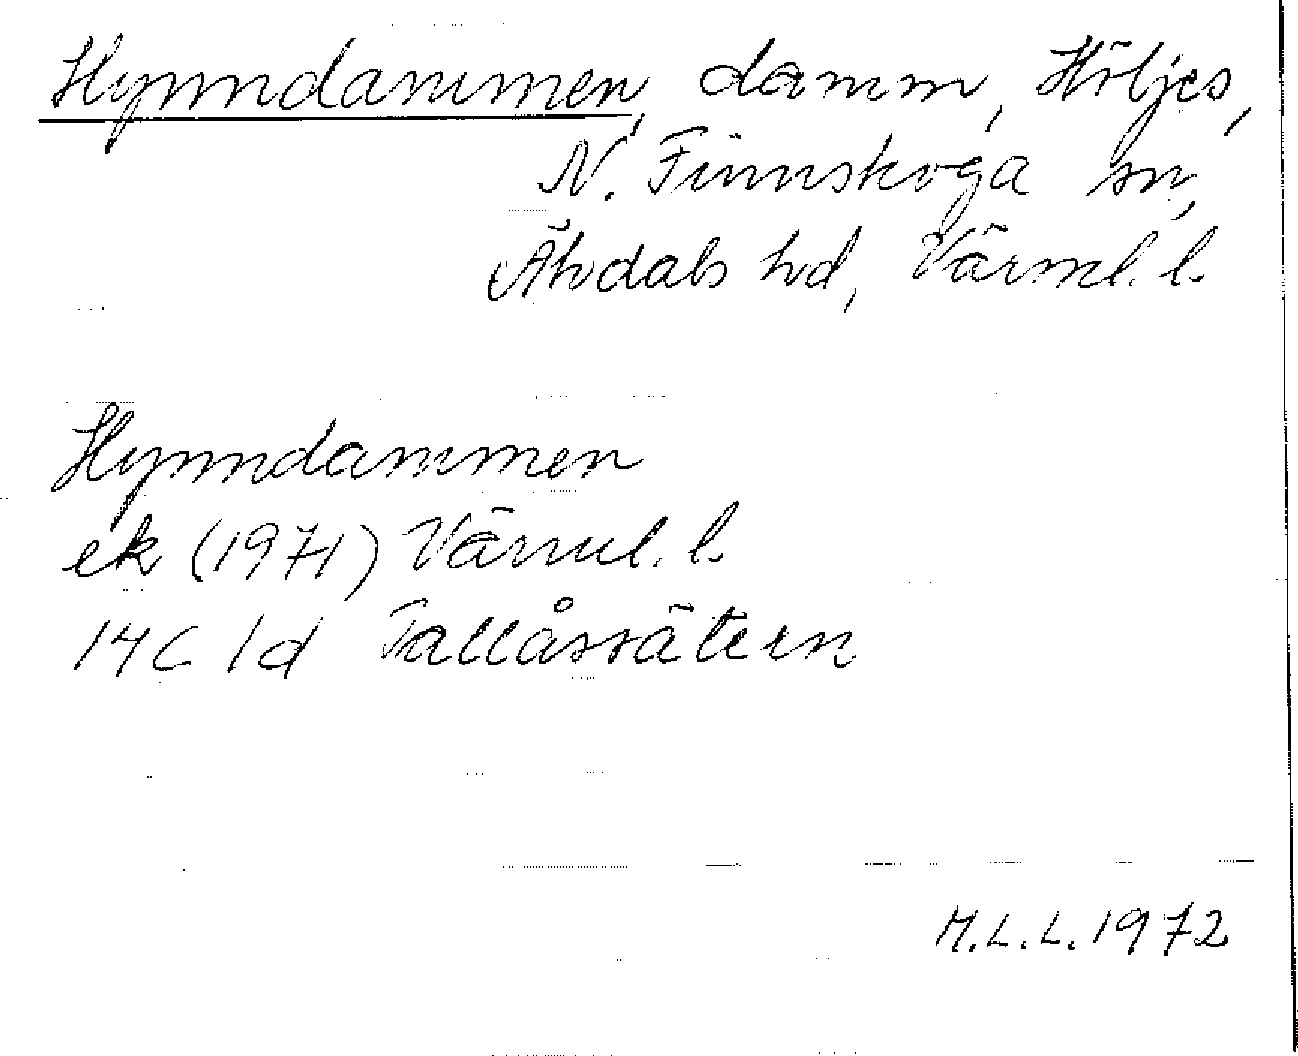 Hynndammen, damm, Höljes,
N. Finnskoga sn,
Älvdals hd, Värml. l.
Hynndammen
ek (1971) Värml. l.
14C 1d Tallåssätern
M.L.L. 1972